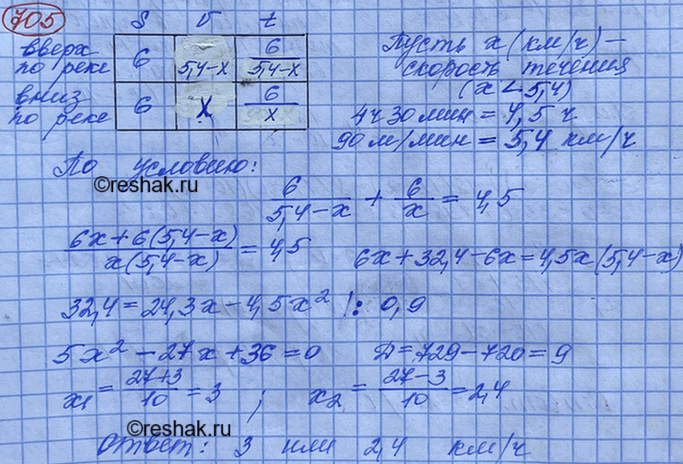 705
S v t
вверх по реке 6 5,4-x 6/(5,4-x)
вниз по реке 6 x 6/x
Пусть x (км/ч) —
скорость течения
(x < 5,4)
4ч 30мин = 4,5 ч
90 м/мин = 5,4 км/ч
По условию:
©reshak.ru
6/(5,4-x) + 6/x = 4,5
(6x+6(5,4-x))/(x(5,4-x)) = 4,5 6x+32,4-6x=4,5x(5,4-x)
32,4=24,3x-4,5x² |: 0,9
5x²-27x+36=0 D=729-720=9
x₁ = (27+3)/10 = 3 ; x₂ = (27-3)/10 = 2,4
©reshak.ru
Ответ: 3 или 2,4 км/ч